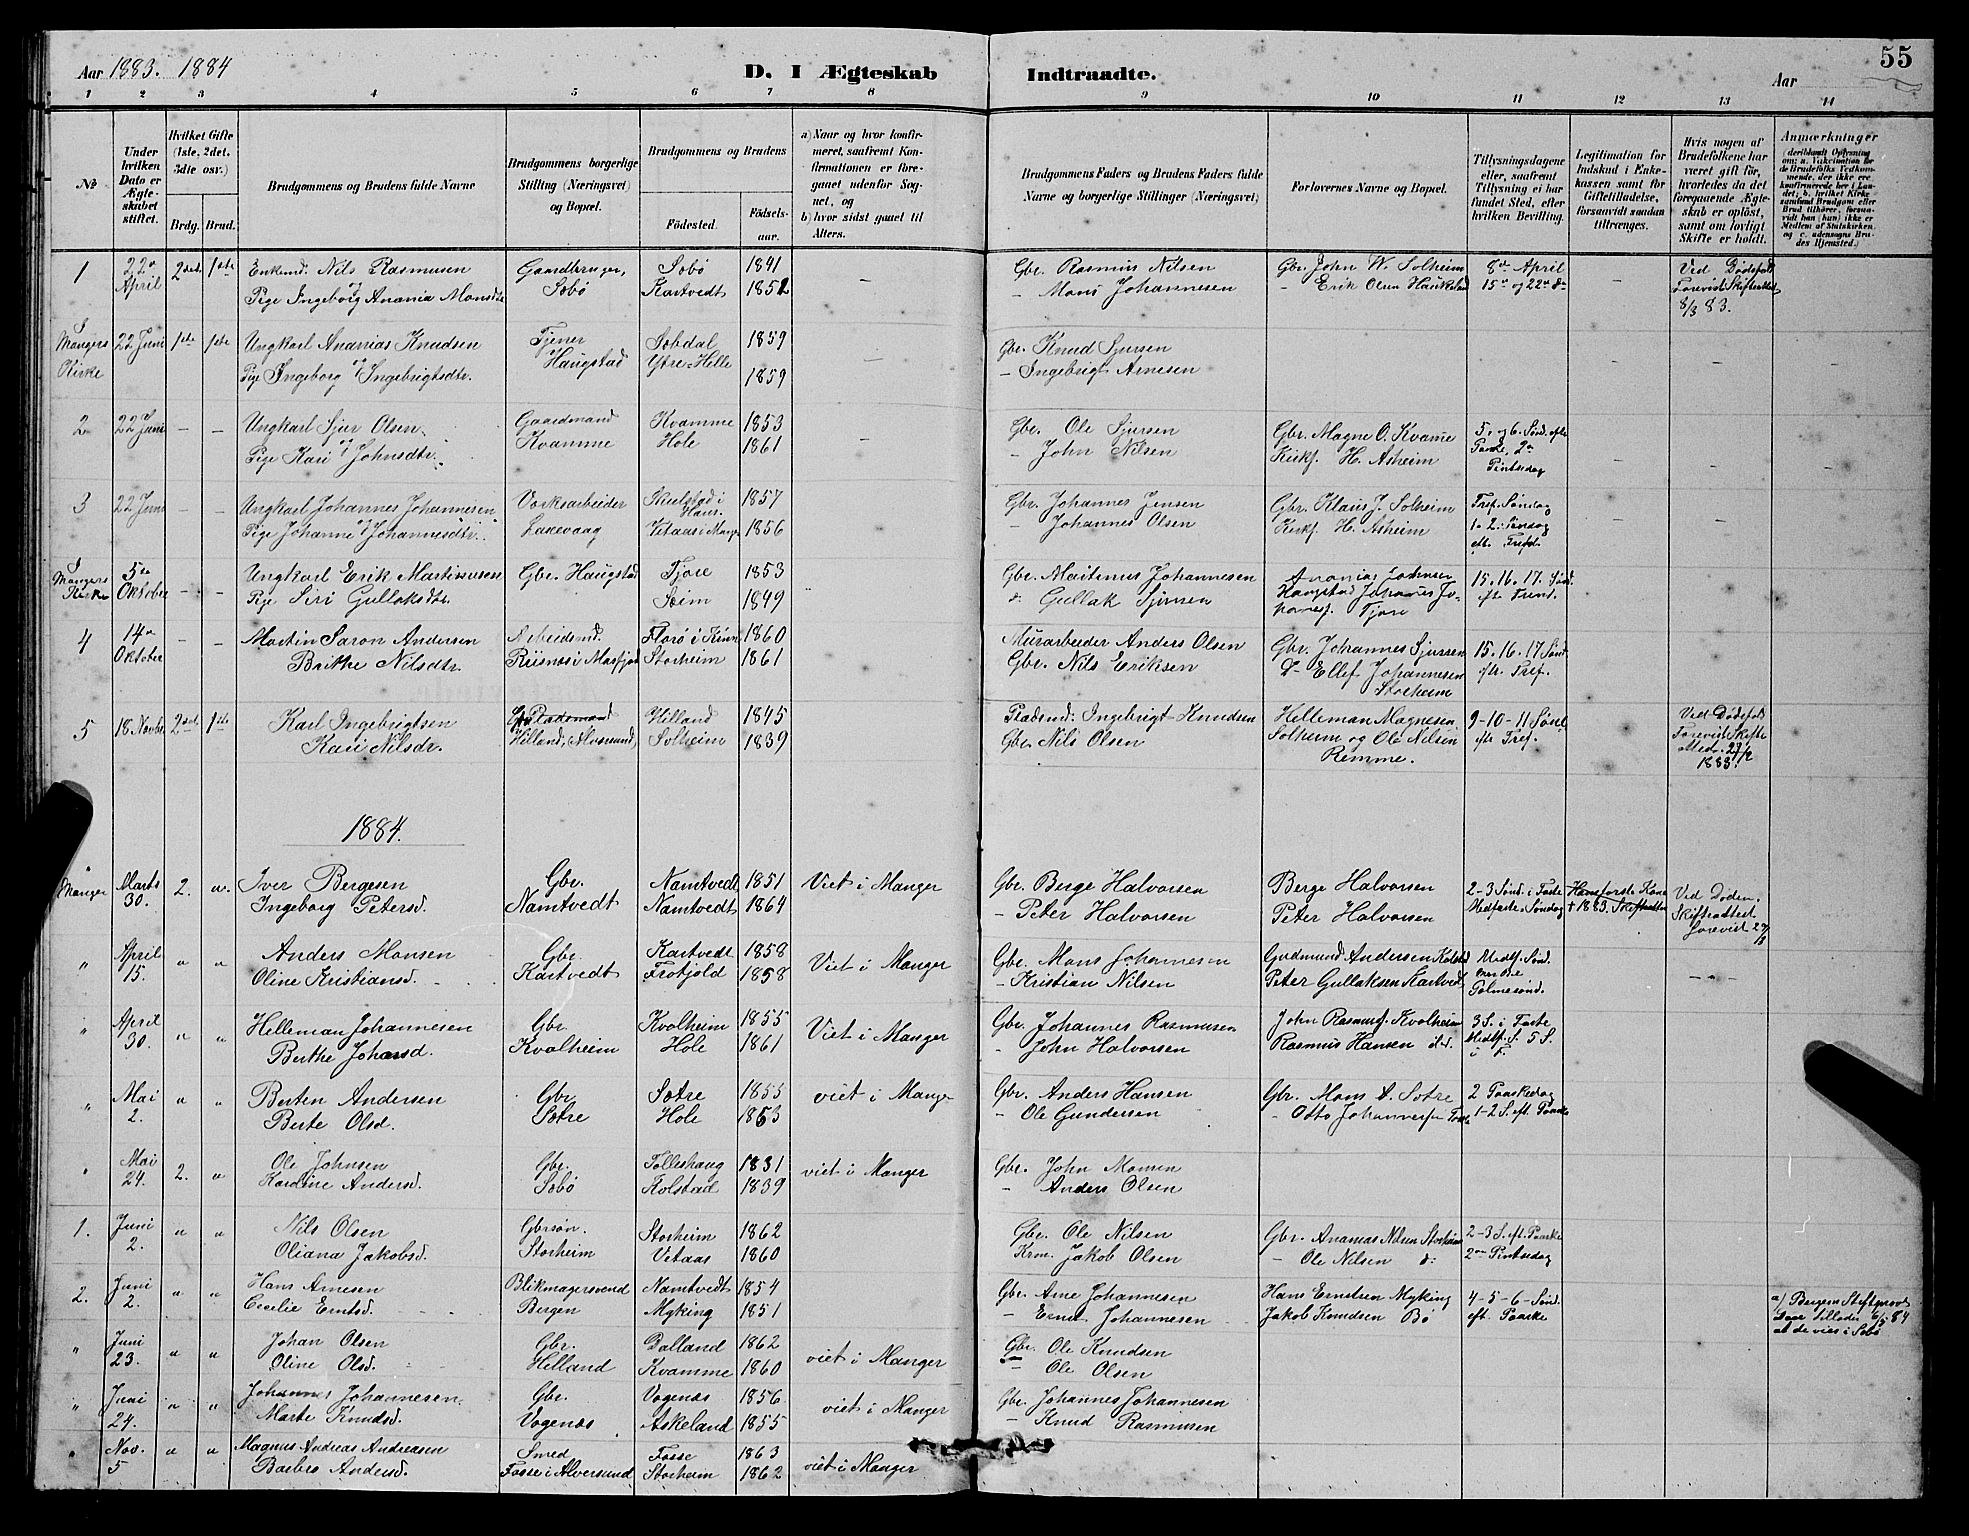 55
Aar 1883. 1884
D. I Ægteskab Indtraadte.
Aar
1 2 3 4 5 6 7 8 9 10 11 12 13 14
No
Under hvilken Dato er Ægteskabet stiftet.
Hvilket Gifte (1ste, 2det, 3die osv.)
Brdg. Brud.
Brudgommens og Brudens fulde Navne
Brudgommens borgerlige Stilling (Næringsvei) og Bopæl.
Brudgommens og Brudens
Fødested.
Fødselsaar.
a) Naar og hvor konfirmeret, saafremt Konfirmationen er foregaaet udenfor Sognet, og
b) hvor sidst gaaet til Alters.
Brudgommens Faders og Brudens Faders fulde Navne og borgerlige Stillinger (Næringsvei)
Forlovernes Navne og Bopæl.
Tillysningsdagene eller, saafremt Tillysning ei har fundet Sted, efter hvilken Bevilling.
Legitimation for Indskud i Enkekassen samt for Giftetilladelse, forsaavidt saadan tiltrænges.
Hvis nogen af Brudefolkene har været gift før, hvorledes da det foregaaende Ægteskab er opløst, samt om lovligt Skifte er holdt.
Anmærkninger
1 22de April 2det 1ste Enkemd: Nils Rasmusen Gaardbruger, Søbø 1841 - Gbr. Rasmus Nilsen Gbr. John W. Solheim 8de April - Ved Dødsfald
Pige Ingeborg Anania Monsdtr Søbø Kartvedt 1852 - Mons Johannesen - Erik Olsen Haukeland 15de og 22de do Forevist Skifteattest
8/3 83.
I Mangers Kirke 22 Juni 1ste 1ste Ungkarl Ananias Knudsen Tjener Søbdal 1859 - Gbr. Knud Sjursen - -
og Pige Ingeborg Ingebrigtsdtr. Haugstad Ytre-Hille 1859 - Ingebrigt Arnesen
2 22 Juni - - Ungkarl Sjur Olsen Gaardmand Kvamme 1853 - Gbr. Ole Sjursen Gbr. Magne O. Kvame 5. og 6. Sønd. efter - - -
og Pige Kari Johnsdtr. Kvamme Hole 1861 - John Nilsen Kirkf. H. Asheim Paaske, 2den Pintsedag
3 22 Juni - - Ungkarl Johannes Johannesen Skulstad i Haus. 1857 Gbr. Johannes Jensen Gbr. Klaus J. Solheim Tref. Søndag - -
og Pige Johanne Johannesdtr. Vetaas i Manger 1856 - Johannes Olsen Kirkf. H. Asheim 1-2. Søndag eft. Trefd.
I Mangers Kirke 5te Oktober - - Ungkarl Erik Martinusen Gbr. Haugstad Fjore 1853 Gbr. Martinus Johannesen Ananias 15. 16. 17. Sønd.
Pige Siri Gullaksdtr. Seim 1849 do Gullak Sjursen Haugstad Johannes Johannesf. Fjore eftr Trend.
4 14de Oktober - - Martin Saron Andersen Arbeidsmd. Florø i Kinn 1860 Murarbeider Anders Olsen Gbr. Johannes Sjursen 15. 16. 17 Sønd.
Brithe Nilsdtr. Riisnes i Masfjord Storheim 1861 Gbr. Nils Eriksen Do Ellef Johannesen Storheim eftr. Tref.
5 18 Novbr. 2det 1ste Karl Ingebrigtsen Pladsmand Hilland 1845 Pladsmd: Ingebrigt Knudsen Helleman Magnesen 9-10-11 Sønd. Ved Dødsfald
Kari Nilsdr. Hilland, Alversund Solheim 1839 Gbr. Nils Olsen Solheim og Ole Nilsen Remme. eftr Tref. Forevist Skifte Attest 27/2 1883.
1884.
Manger Marts 30. 2. " Iver Bergesen Gbr. Namtvedt 1851 Viet i Manger Gbr. Berge Halvorsen Berge Halvorsen 2-3 Sønd. i Faste Hans første Kone Ved Døden.
Ingeborg Petersd. Namtvedt Namtvedt 1864 - Peter Halvorsen Peter Halvorsen Midfaste Søndag † 1883. Skifteattest Skifteattest forevist 27/3
" April 15. " " Anders Monsen Gbr. Kartvedt 1858 Viet i Manger Gbr. Mons Johannesen Gudmund Andersen Kolstad Midtf. Sønd.
Oline Kristiansd. Kartvedt Frotjold 1858 - Kristian Nilsen Peter Gullaksen Kartvedt Palmesønd. - - -
" April 30. " " Helleman Johannesen Gbr. Kvolheim 1855 Viet i Manger Gbr. Johannes Rasmusen John Rasmusf. Kvolheim 3 S. i Faste
Berthe Johansd. Kvalheim Hole 1861 - John Halvorsen Rasmus Hansen ibd. Midtf. S. 5 S. i F.
" Mai 2. " " Berten Andersen Gbr. Sotre 1855 viet i Manger Gbr. Anders Hansen Gbr. Mons A. Sotre 2 Paaskedag
Berte Olsd. Sotre Hole 1863 - Ole Gundersen - Otto Johannesen 1-2 S. eft. Paaske
" Mai 24. 2. " Ole Johnsen Gbr. Tolleshaug 1831 viet i Manger Gbr. John Monsen
Kardine Andersd. Søbø Kolstad 1839 - Anders Olsen
1. Juni 2. " " Nils Olsen Gbrsøn. Storheim 1862 Gbr. Ole Nilsen Gbr. Ananias Nilsen Storheim 2-3 S. eft. Paaske
Oliana Jakobsd. Storheim Vetaas 1860 Krm. Jakob Olsen - Ole Nilsen do: 2den Pintsedag
2. Juni 2. " " Hans Arnesen Blikmagersvend Namtvedt 1854 Gbr. Arne Johannesen Hans Ernstsen Myking 4-5-6- Sønd. a) Bergens Stiftsprovst
Cecilie Erntsd. Bergen Myking 1851 - Ernst Johannesen Jakob Knudsen Bø eft. Paaske 6/5 84 at de vies i Søbø
" Juni 23. " " Johan Olsen Gbr. Dalland 1862 viet i Manger Gbr. Ole Knudsen
Oline Olsd. Hilland Kvamme 1860 - Ole Olsen
" Juni 24. " " Johannes Johannesen Gbr. Vogenæs 1856 viet i Manger Gbr. Johannes Johannesen
Marte Knudsd. Vogenæs Askeland 1855 - Knud Rasmusen
" Nov. 5 " " Magnus Andreas Andreasen Smed Fosse 1863 viet i Manger
Barbro Andersd. Fosse i Alversund Storheim 1862